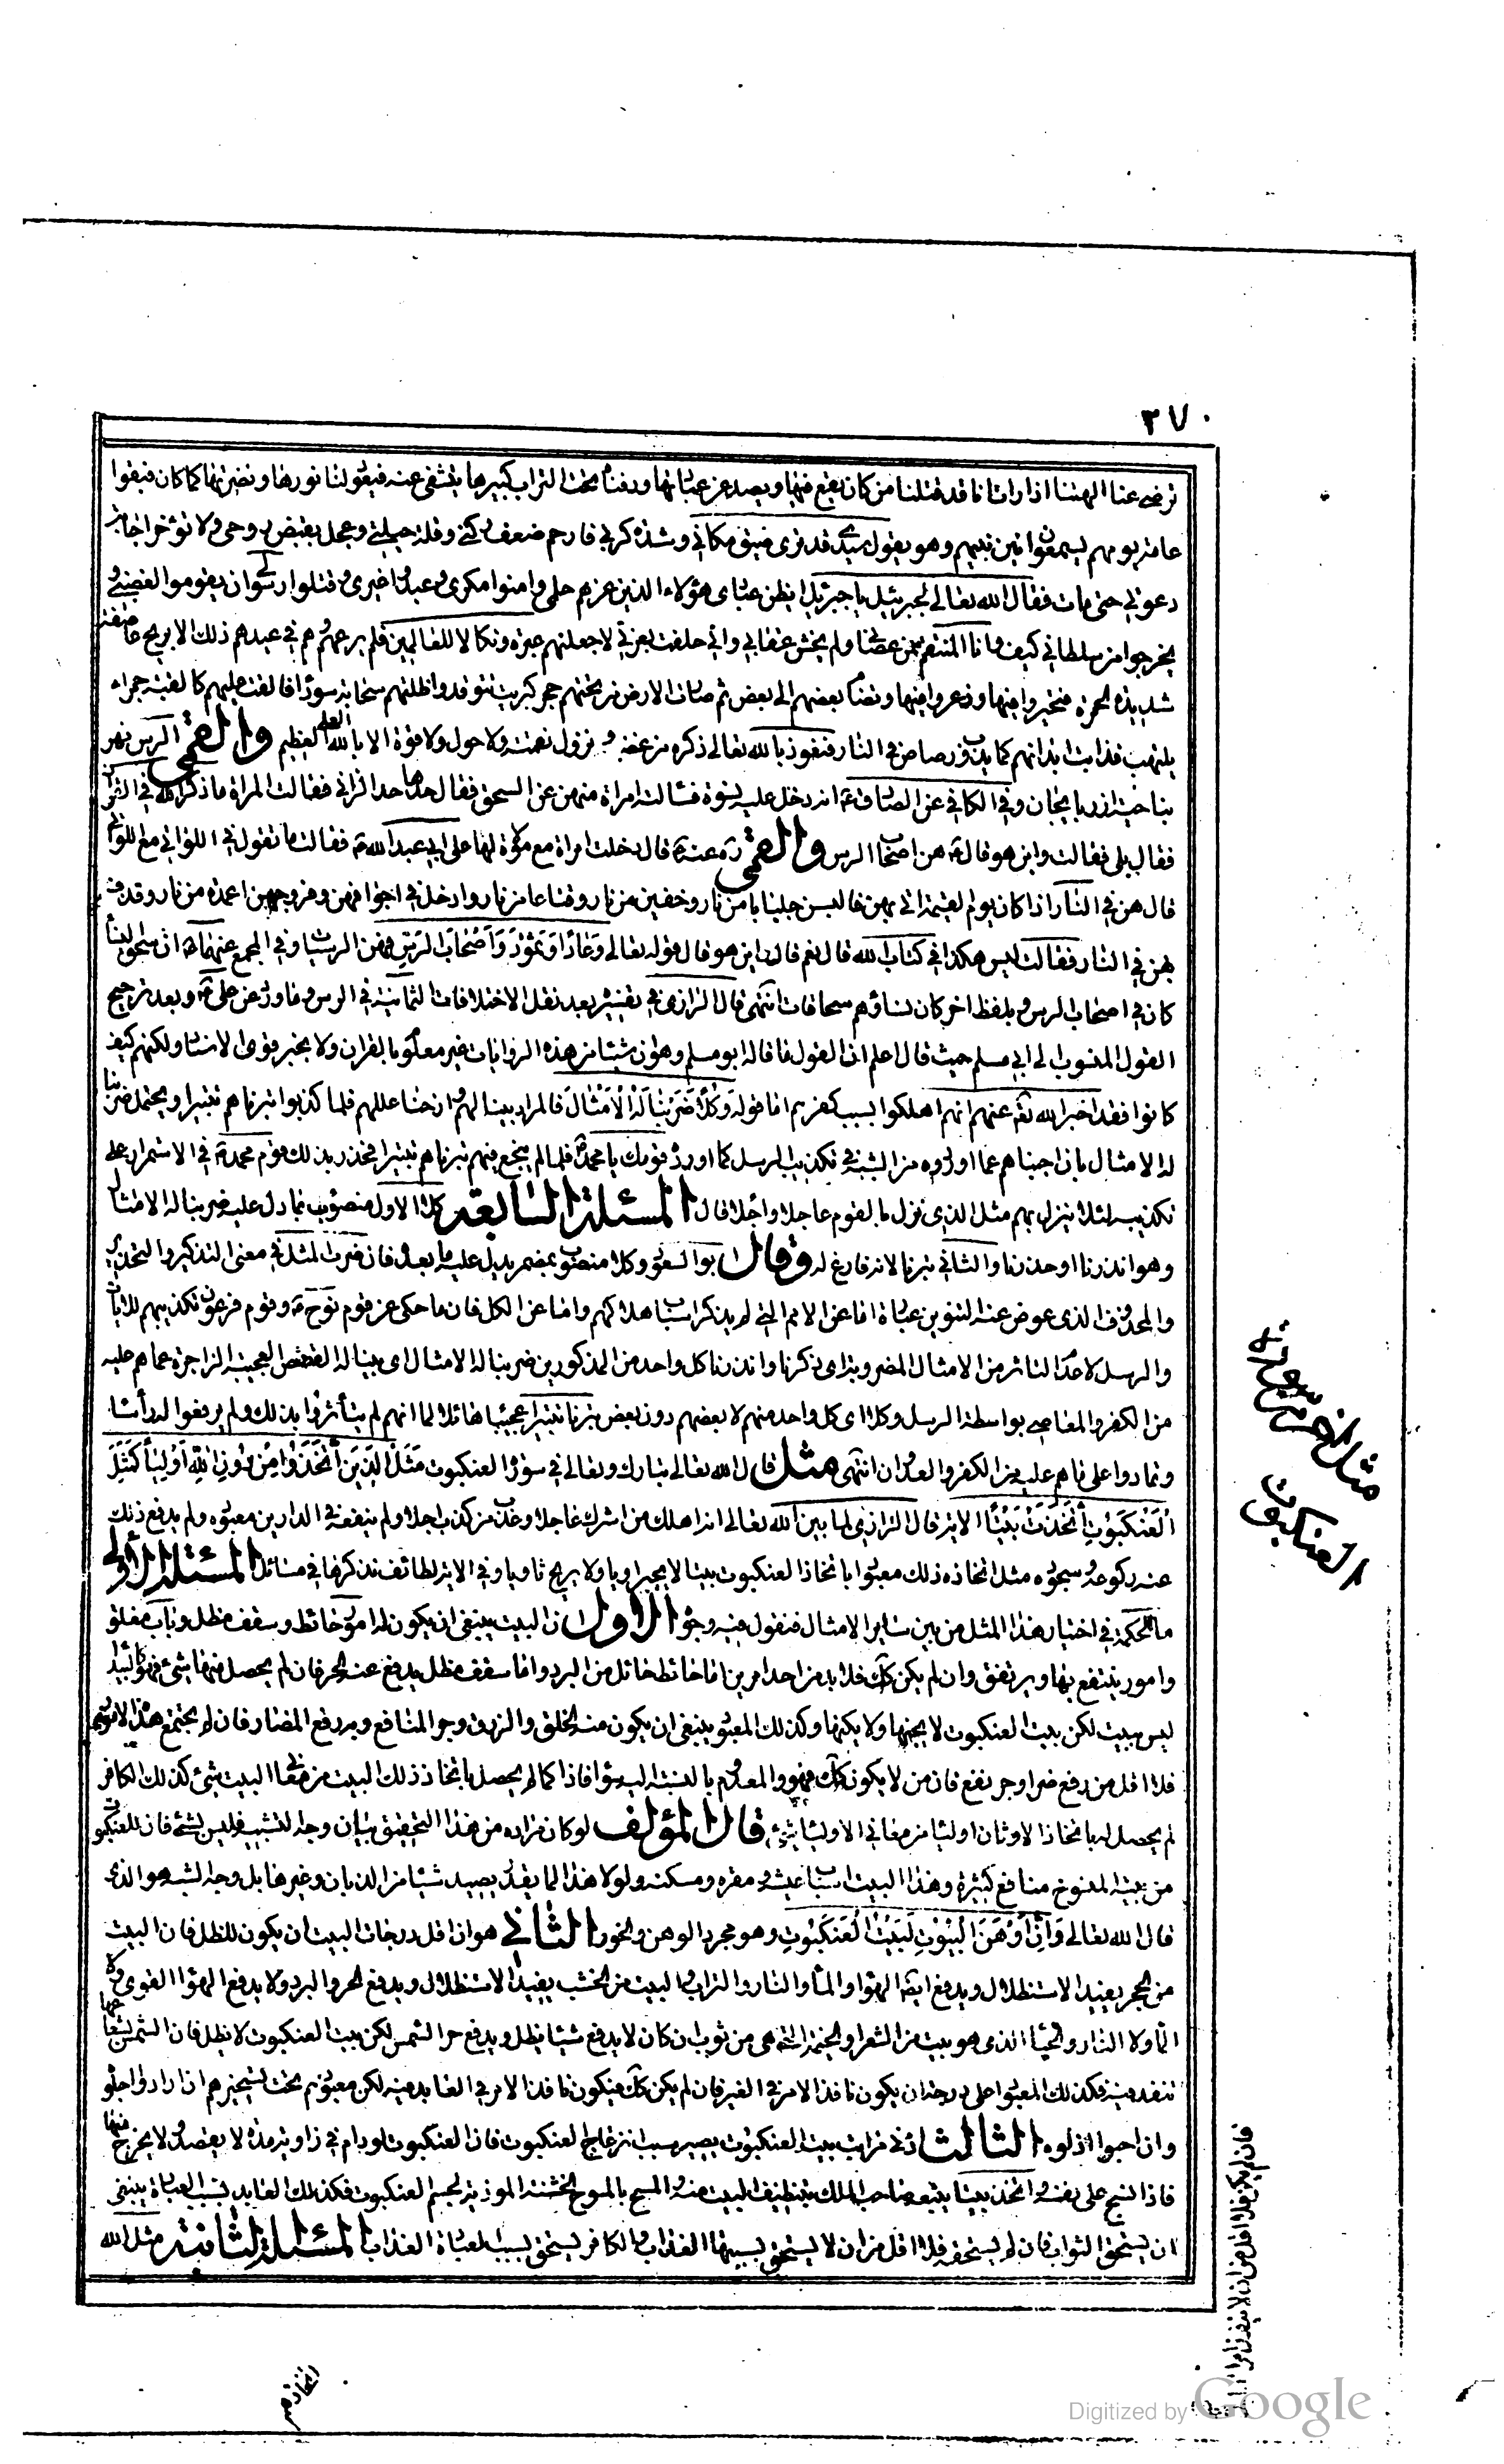 ٣٧٠
ترضى عنا الهتنا اذا رات انا قد قتلنا من كان يقع فيها ويصد عن عبادتها ودفناه تحت التراب كبيرها يتشفى عنه فيعود لنا نورها ونضرتها كما كان فبقوا
عامة يومهم يسمعون انين نبيهم وهو يقول سيدى قد ترى ضيق مكاني وشدة كربى فارحم ضعف ركنى وقلة حيلتى وعجل بقبض روحى ولا تؤخر اجابة
دعوتي حتى مات فقال الله تعالى لجبرئيل يا جبرئيل ايظن عبادى هؤلاء الذين غرهم حلمى وامنوا مكرى وعبدوا غيرى وقتلوا رسولى ان يقوموا لغضبى او
يخرجوا من سلطاني كيف وانا المنتقم ممن عصانى ولم يخش عقابي واني حلفت بعزتي لاجعلنهم عبرة ونكالا للعالمين فلم يرعهم وهم في عيدهم ذلك الا بريح عاصفة
شديدة الحمرة فتحيروا فيها وذعروا منها وتضام بعضهم الى بعض ثم صارت الارض من تحتهم حجر كبريت تتوقد واظلتهم سحابة سوداء فالقت عليهم كالقبة جمراء
يلتهب فذابت ابدانهم كما يذوب الرصاص في النار فنعوذ بالله تعالى ذكره من غضبه ونزول نقمته ولا حول ولا قوة الا بالله العلي العظيم والقمى الرس نهر
بناحية اذربايجان وفي الكافي عن الصادق ع انه دخل عليه نسوة فسألته امراة منهن عن السحق فقال حدها حد الزاني فقالت المراة ما ذكر الله في القران
فقال بلى فقالت واين هو قال هن اصحاب الرس والقمى ره عنه ع قال دخلت امراة مع مولاة لها على ابي عبد الله ع فقالت ما تقول في اللواتي مع اللواتي
قال هن في النار اذا كان يوم القيمة اتي بهن فالبسن جلبابا من نار وخفين من نار وقناعا من نار وادخل في اجوافهن وفروجهن اعمدة من نار وقذف
بهن في النار فقالت ليس هكذا في كتاب الله قال نعم قالت اين هو قال قوله تعالى وَعَادًا وَثَمُودَ وَأَصْحَابَ الرَّسِّ فهن الرسيات وفي المجمع عنهما ع ان سحق النساء
كان في اصحاب الرس وبلفظ اخر كان نساؤهم سحاقات انتهى قال الرازى في تفسيره بعد نقل الاختلافات الثمانية في الرس وما روى عن علي ع وبعد ترجيح
القول المنسوب الى ابي مسلم حيث قال اعلم ان القول ما قاله ابو مسلم وهو ان شيئا من هذه الروايات غير معلوم بالقران ولا بخبر قوى الاسناد ولكنهم كيف
كانوا فقد اخبر الله تعه عنهم انهم اهلكوا بسبب كفرهم اما قوله وَكُلًّا ضَرَبْنَا لَهُ الْأَمْثَالَ فالمراد بينا لهم وازحنا عللهم فلما كذبوا تبرناهم تتبيرا ويحتمل ضربنا
له الامثال بان اجبناهم عما اوردوه من الشبه في تكذيب الرسل كما اورده قومك يا محمد ص فلما لم ينجع فيهم تبرناهم تتبيرا فحذر بذلك قوم محمد ص في الاستمرار على
تكذيبه لئلا ينزل بهم مثل الذى نزل بالقوم عاجلا واجلا قال المسئلة السابعة كلا الاول منصوب بما دل عليه ضربنا له الامثال
وهو انذرنا او حذرنا والثاني تبرنا لانه فارغ له وقال ابو السعود وكلا منصوب بمضمر يدل عليه ما بعده فان ضرب المثل في معنى التذكير والتحذير
والمحذوف الذى عوض عنه التنوين عبارة اما عن الامم التي لم يذكر اسباب هلاكهم واما عن الكل فان ما حكى عن قوم نوح ع وقوم فرعون تكذيبهم للايات
والرسل لا عدم التاثر من الامثال المضروبة اى ذكرنا وانذرنا كل واحد من المذكورين ضربنا له الامثال اى بينا له القصص العجيبة الزاجرة عما هم عليه
من الكفر والمعاصي بواسطة الرسل وكلا اى كل واحد منهم لا بعضهم دون بعض تبرنا تتبيرا عجيبا هائلا لما انهم لم يتأثروا بذلك ولم يرفعوا له رأسا
وتمادوا على ما هم عليه من الكفر والعدوان انتهى مثل قال الله تعالى تبارك وتعالى في سورة العنكبوت مَثَلُ الَّذِينَ اتَّخَذُوا مِنْ دُونِ اللهِ أَوْلِيَاءَ كَمَثَلِ
الْعَنْكَبُوتِ اتَّخَذَتْ بَيْتًا الاية قال الرازى لما بين الله تعالى انه اهلك من اشرك عاجلا وعذب من كذب اجلا ولم ينفعه في الدارين معبوده ولم يدفع ذلك
عنه ركوعه وسجوده مثل اتخاذه ذلك معبودا باتخاذ العنكبوت بيتا لا يجير اويا ولا يريح ثاويا وفي الاية لطائف نذكرها في مسائل المسئلة الأولى
ما الحكمة في اختيار هذا المثل من بين سائر الامثال فنقول فيه وجوه الاول ان البيت ينبغي ان يكون له امور حائط وسقف مظل وباب مغلق
وامور ينتفع بها ويرتفق وان لم يكن كك فلا بد من احد امرين اما حائط حائل من البرد واما سقف مظل يدفع عنه الحر فان لم يحصل منها شئ فهو كالبيداء
ليس ببيت لكن بيت العنكبوت لا يجنها ولا يكنها وكذلك المعبود ينبغي ان يكون منه الخلق والرزق وجر المنافع وبه دفع المضار فان لم يجتمع هذه الامور
فلا اقل من دفع ضر او جر نفع فان من لا يكون كك فهو والمعدوم بالنسبة اليه سواء فاذا كما لم يحصل باتخاذ ذلك البيت من معاني البيت شئ كذلك الكافر
لم يحصل له باتخاذ الاوثان اولياء من معاني الاولياء شئ قال المؤلف لو كان مراده من هذا التحقيق بيان وجه التشبيه فليس بشئ فان للعنكبوت
من بيته المنسوخ منافع كثيرة وهذا البيت اسباب عيشه ومقره ومسكنه ولولا هذا لما يقدر بصيد شيئا من الذبان وغيرها بل وجه الشبه هو الذى
قال الله تعالى وَإِنَّ أَوْهَنَ الْبُيُوتِ لَبَيْتُ الْعَنْكَبُوتِ وهو مجرد الوهن والخور الثاني هو ان اقل درجات البيت ان يكون للظل فان البيت
من الحجر يفيد الاستظلال ويدفع ايضا الهواء والماء والنار والتراب والبيت من الخشب يفيد الاستظلال ويدفع الحر والبرد ولا يدفع الهواء القوى ولا
الماء ولا النار والخباء الذى هو بيت من الشعر والخيمة التى هى من ثوب ان كان لا يدفع شيئا يظل ويدفع حر الشمس لكن بيت العنكبوت لا يظل فان الشمس بشعاعها
تنفذ فيه فكذلك المعبود اعلى درجته ان يكون نافذ الامر في الغير فان لم يكن كك فيكون نافذ الامر في العابد منه لكن معبودهم تحت تسخيرهم ان ارادوا اجلوه
وان احبوا اذلوه الثالث ادنى مراتب بيت العنكبوت يصير سبب انزعاج العنكبوت فان العنكبوت لو دام في زاوية مدة لا يقصد ولا يخرج منها
فاذا نسج على نفسه واتخذ بيتا يتبعه صاحب الملك بتنظيف البيت منه والمسح بالمسوح الخشنة الموذية لجسم العنكبوت فكذلك العابد بسبب العبادة ينبغى
ان يستحق الثواب فان لم يستحقه فلا اقل من ان لا يستحق بسببها العذاب والكافر يستحق بسبب العبادة العذاب المسئلة الثانية مثل الله
اتخاذهم
مثل اخر من سورة
العنكبوت
فان لم يكن فلا اقل من ان لا ينفذ امر
Digitized by Google